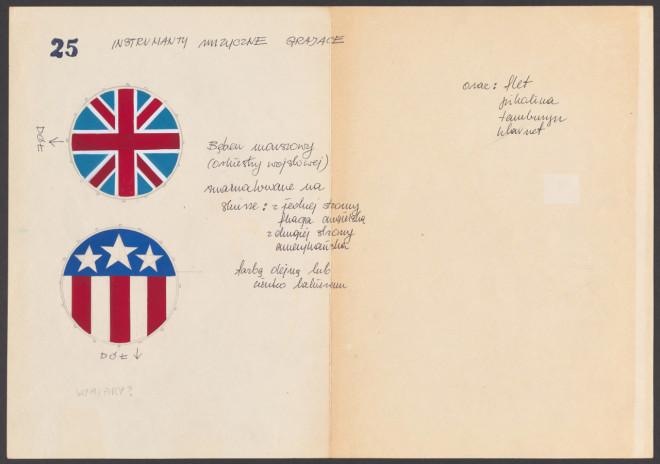 25
INSTRUMANTY MUZYCZNE GRAJĄCE
oraz: flet
pikolina
tamburyn
klarnet
DÓŁ ←
Bęben marszowy
(orkiestry wojskowej)
namalowane na
skórze: z jednej strony
flaga angielska
z drugiej strony
amerykańska
farbą olejną lub
cienko lateksem
DÓŁ ↓
WYMIARY?